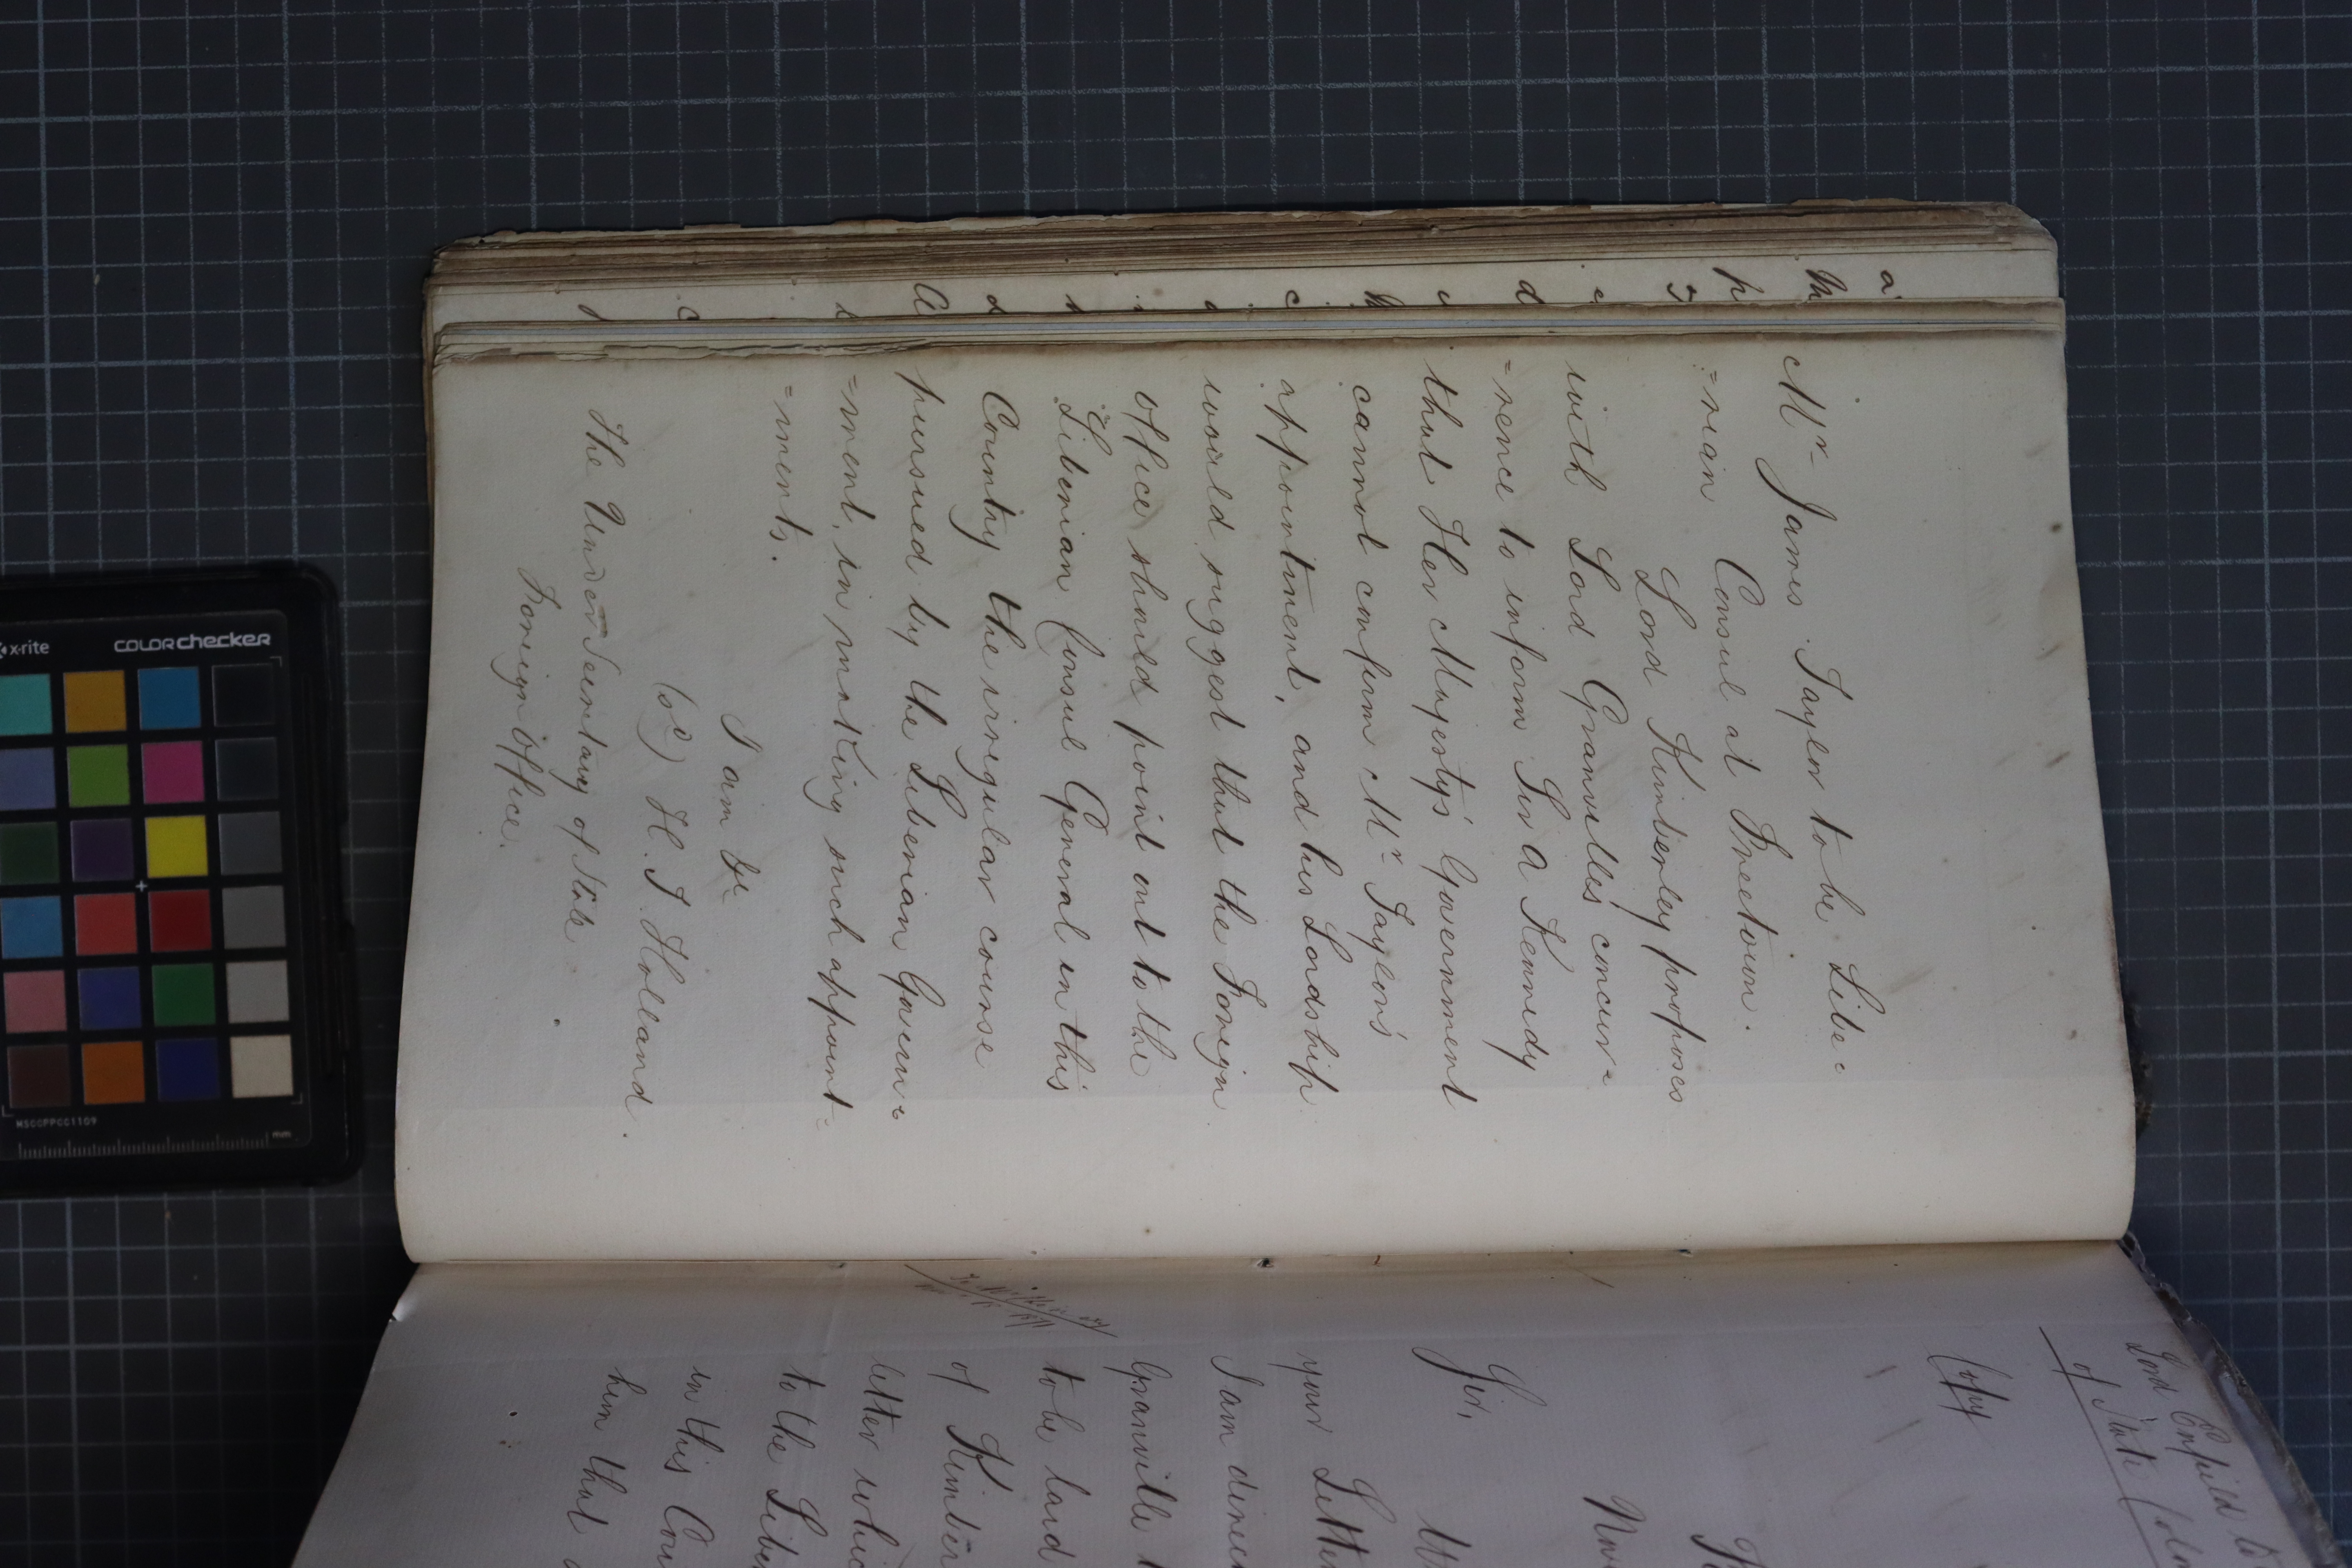 Mr James Taylor to be Libe=
=rian Consul at Freetown.
Lord Kimberley proposes
with Lord Granville's concur=
=rence to inform Sir A Kennedy
that Her Majesty's Government
cannot confirm Mr Taylor's
appointment, and his Lordship
would suggest that the Foreign
Office should point out to the
Liberian Consul General in this
Country the irregular course
pursued by the Liberian Govern=
=ment, in making such appoint=
=ments.
I am &c
(sd) H. T. Holland.
The Under Secretary of State
Foreign Office.
Lord Enfield to
of State
Copy
Sir,
your Letter
I am direc
Granville t
to be laid
of Kimber
letter whic
to the Liber
in this Cou
him that a
x-rite
COLORchecker
MSCCPPCC1109
mm